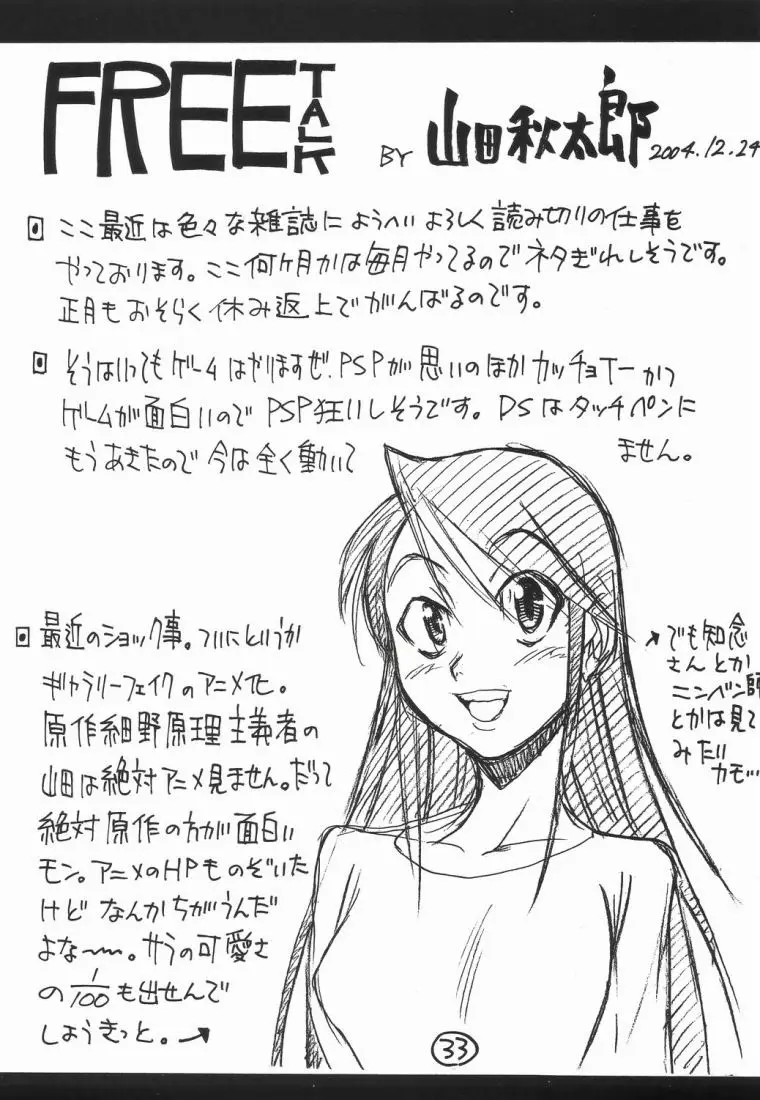 FREE TALK
BY 山田秋太郎 2004.12.24
ここ最近は色々な雑誌にようへいよろしく読み切りの仕事を
やっております。ここ何ヶ月かは毎月やってるのでネタぎれしそうです。
正月もおそらく休み返上でがんばるのです。
そうはいってもゲームはやりますぜ、PSPが思いのほかカッチョエーかつ
ゲームが面白いのでPSP狂いしそうです。DSはタッチペンに
もうあきたので今は全く動いて ません。
最近のショック事。ついにというか
ギャラリーフェイクのアニメ化。
原作細野原理主義者の
山田は絶対アニメ見ません。だって
絶対原作の方が面白い
モン。アニメのHPものぞいた
けどなんかちがうんだ
よな〜。サラの可愛さ
の1/100も出せんで
しょうきっと。→
↗でも知念
さんとか
ニンベン師
とかは見て
みたい
カモ…
33